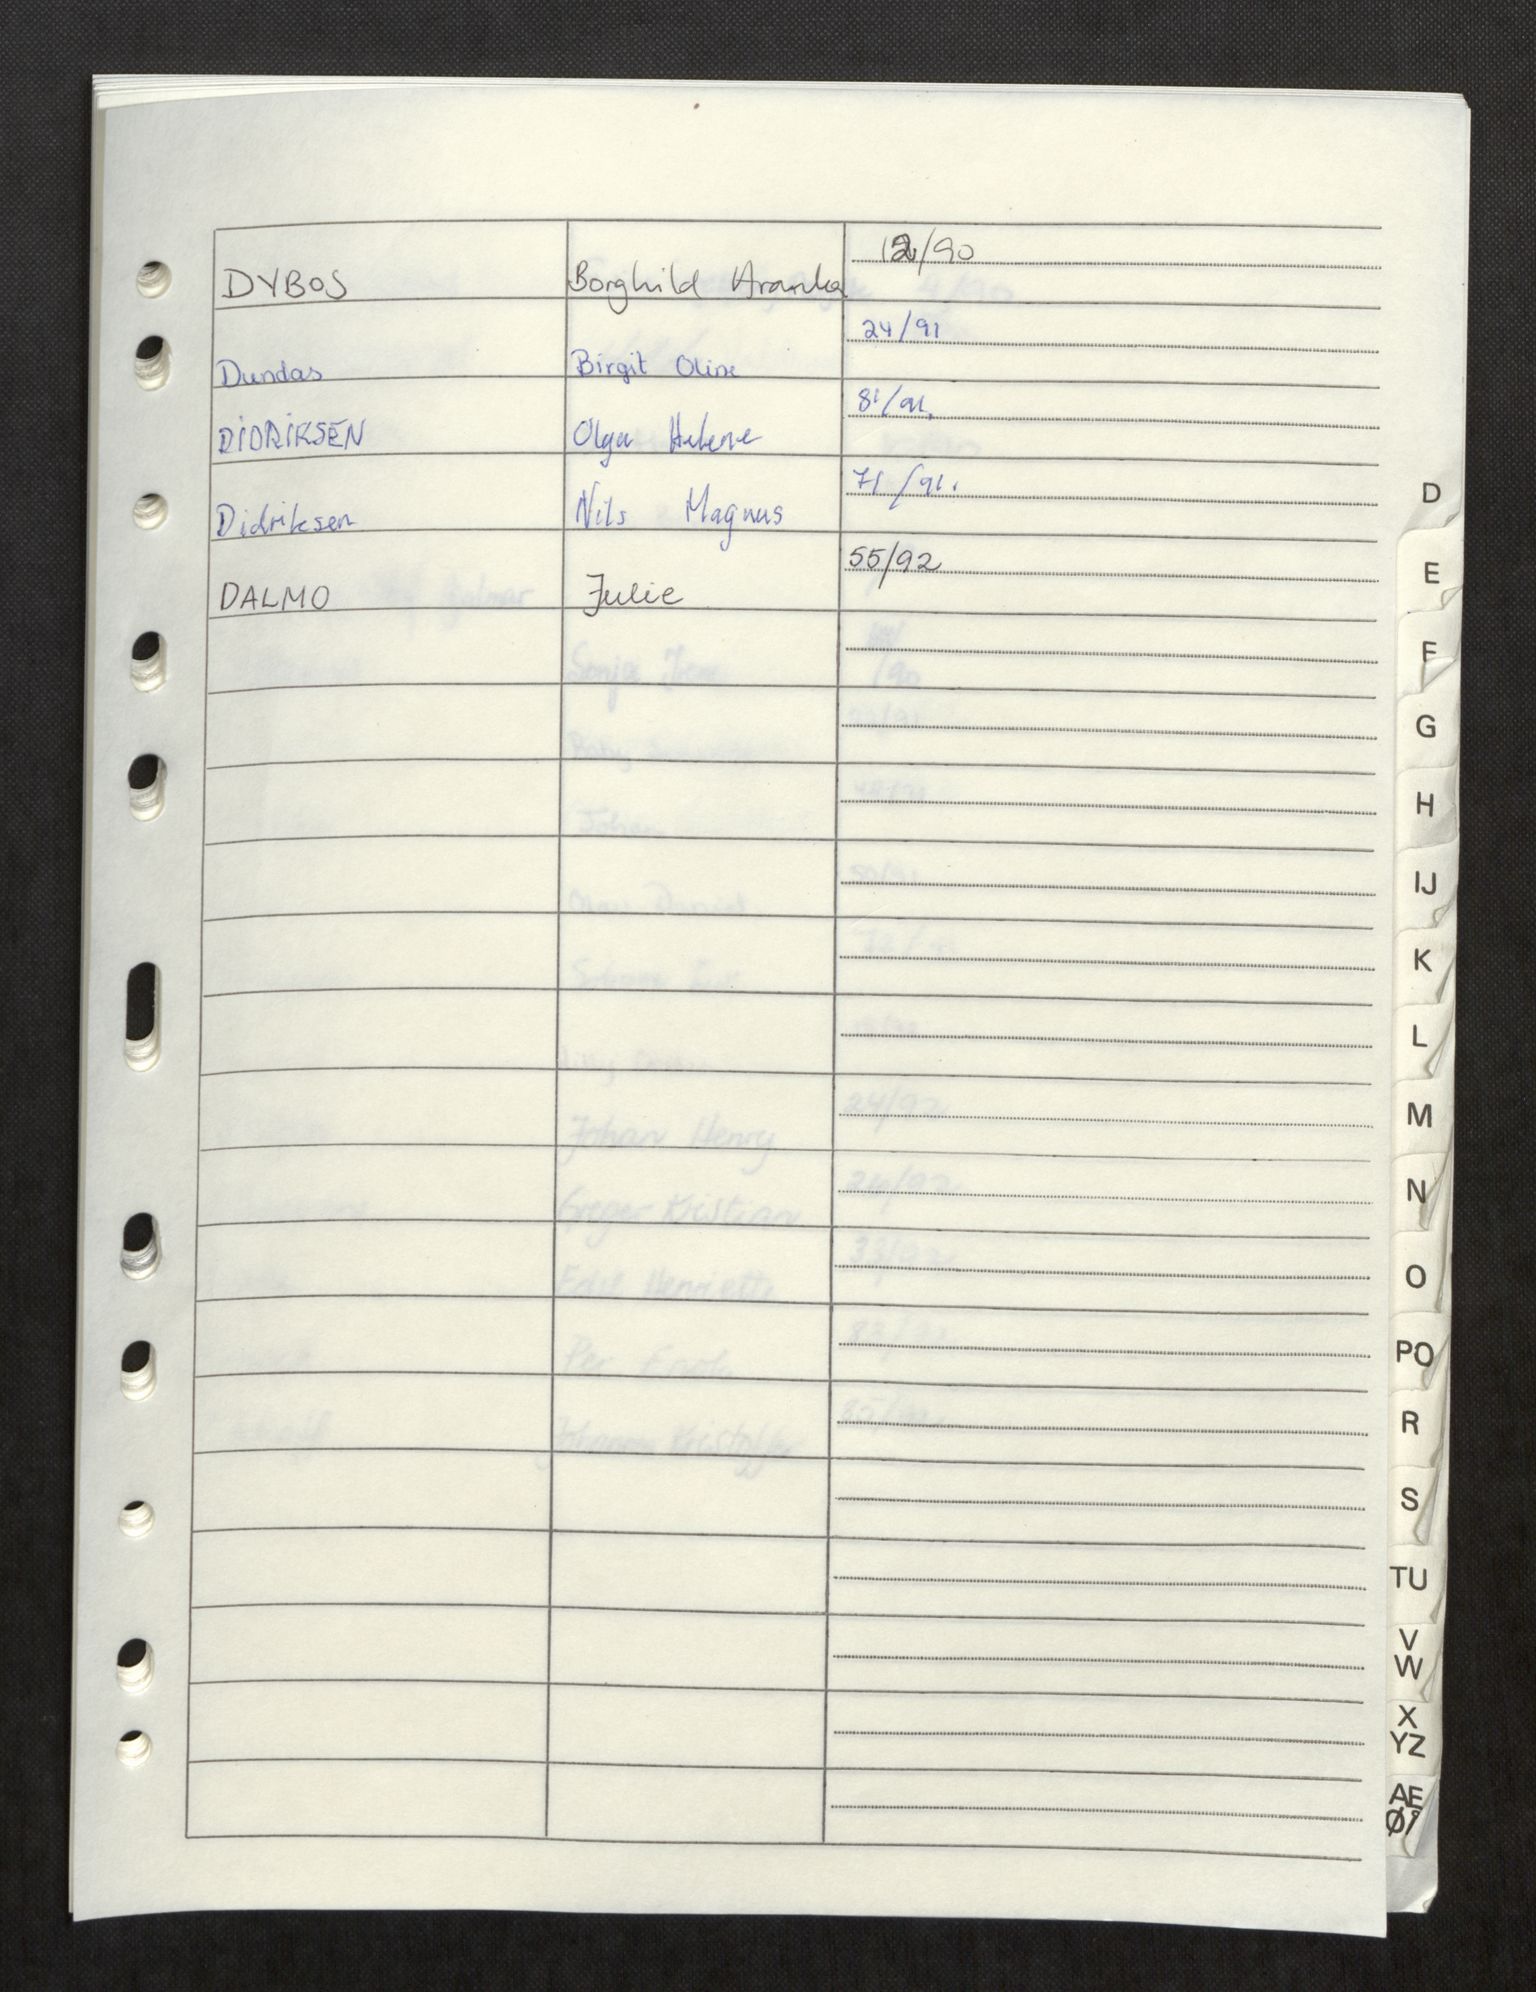 DYBOS Borghild Aranka 12/90
Dundas Birgit Oline 24/91
DIDRIKSEN Olga Helene 81/91.
Didriksen Nils Magnus 71/91.
DALMO Julie 55/92
D
E
F
G
H
IJ
K
L
M
N
O
PQ
R
S
TU
V
W
X
YZ